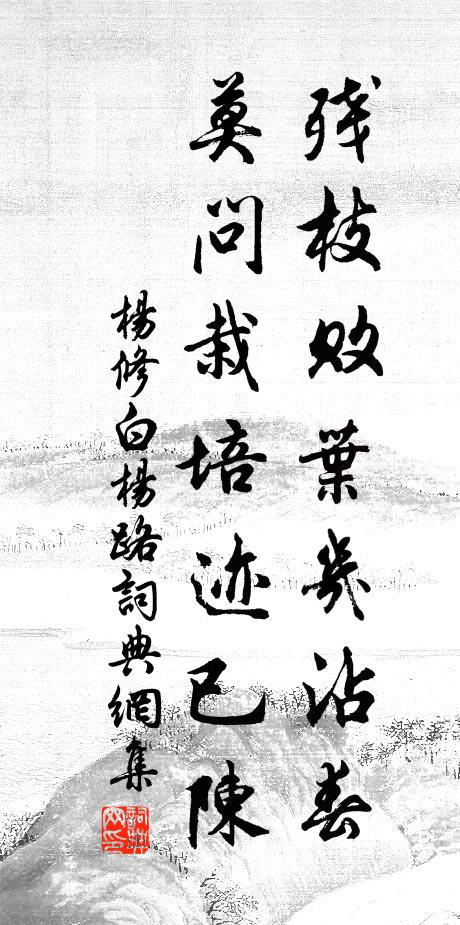 残枝败葉幾沾春
莫問栽培迹已陳
楊修白楊路詞典網集
詞典网印